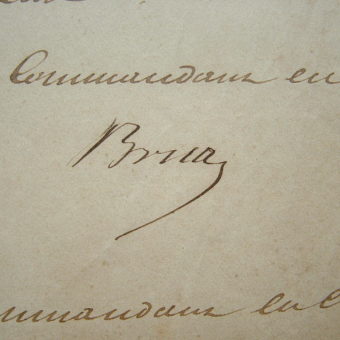 Commandant en
Bruat
mmandant en C